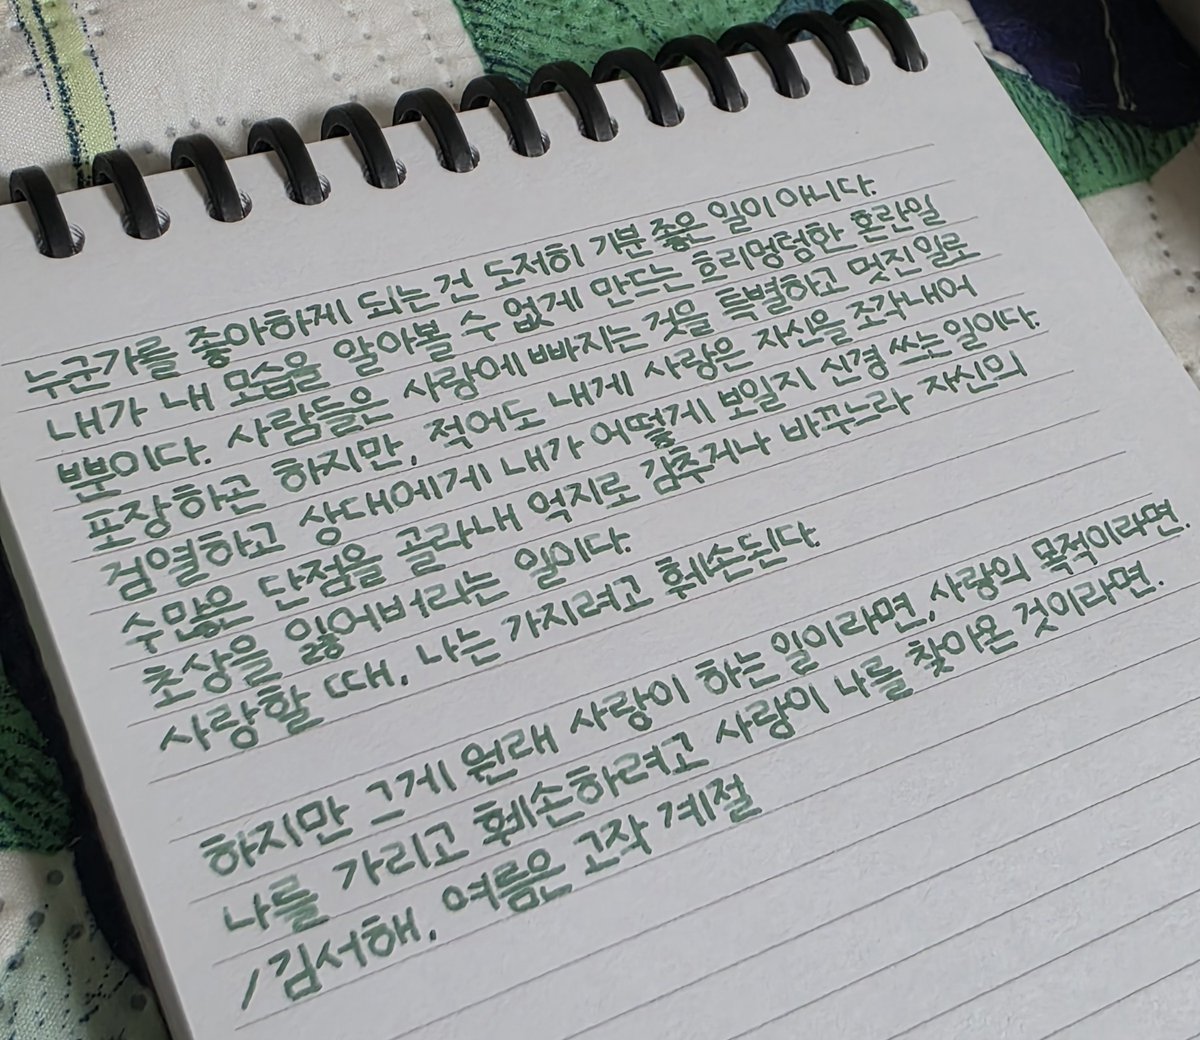 누군가를 좋아하게 되는 건 도저히 기분 좋은 일이 아니다.
내가 내 모습을 알아볼 수 없게 만드는 흐리멍텅한 혼란일
뿐이다. 사람들은 사랑에 빠지는 것을 특별하고 멋진 일로
포장하곤 하지만, 적어도 내게 사랑은 자신을 조각내어
검열하고 상대에게 내가 어떻게 보일지 신경 쓰는 일이다.
수많은 단점을 골라내 억지로 감추거나 바꾸느라 자신의
초상을 잃어버리는 일이다.
사랑할 때, 나는 가지려고 훼손된다.
하지만 그게 원래 사랑이 하는 일이라면, 사랑의 목적이라면.
나를 가리고 훼손하려고 사랑이 나를 찾아온 것이라면.
/김서해, 여름은 고작 계절